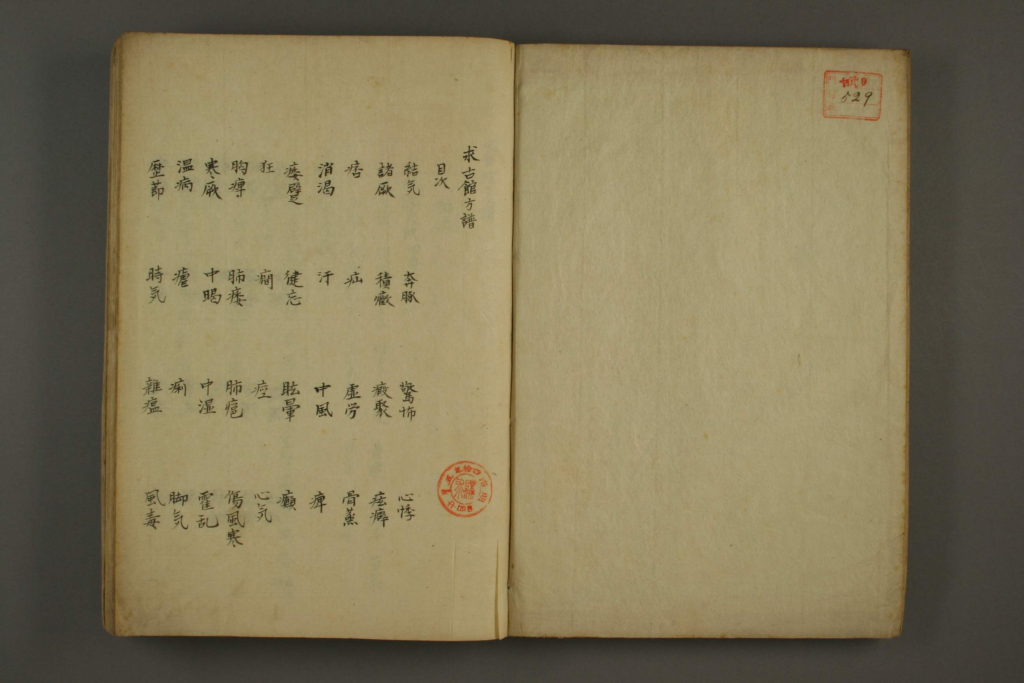 529
求古館方譜
目次
結気 奔豚 驚怖 心悸
諸厥 積癥 癥聚 痃癖
痞 疝 虚労 骨蒸
消渇 汗 中風 痺
痿躄 健忘 眩暈 癲
狂 癇 痙 心気
胸痺 肺痿 肺疽 傷風寒
寒厥 中暍 中湿 霍乱
温病 瘧 痢 脚気
歴節 時気 雑瘟 風毒